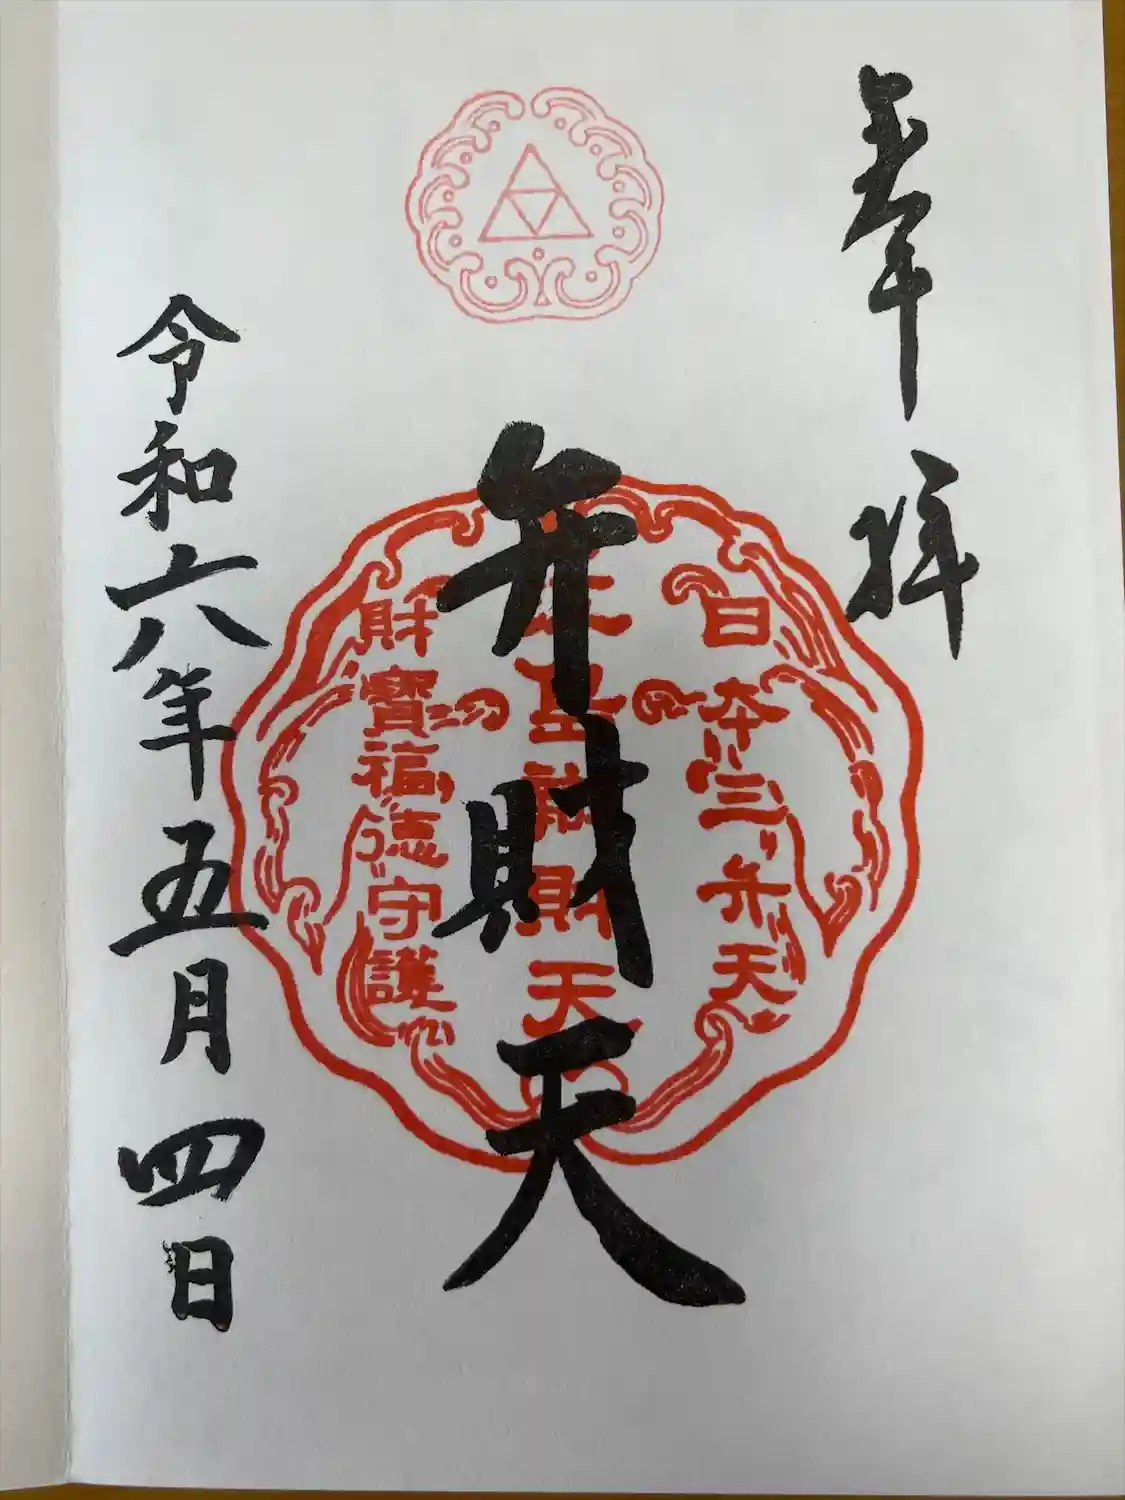 奉拝
日本三弁天
財天
弁財天
財寶福徳守護
令和六年五月四日